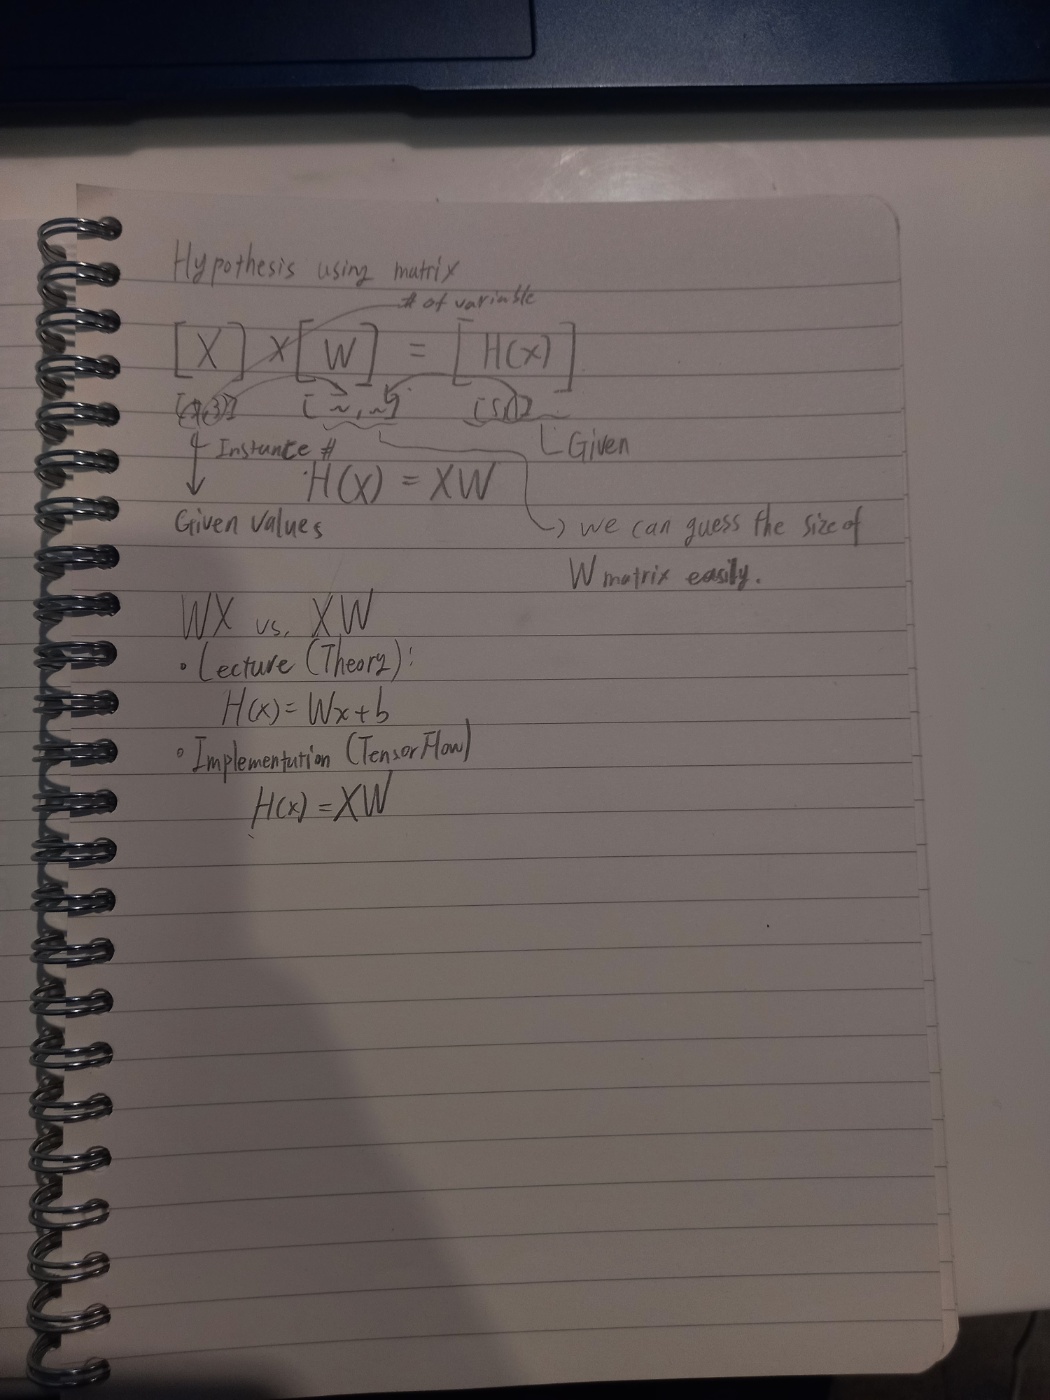 Hypothesis using matrix
# of variable
[X] X [W] = [H(x)]
[~, ~] [5,1]
Instance # Given
H(x) = XW
Given values → we can guess the size of
W matrix easily.
WX vs. XW
• Lecture (Theory):
H(x) = Wx+b
• Implementation (TensorFlow)
H(x) = XW